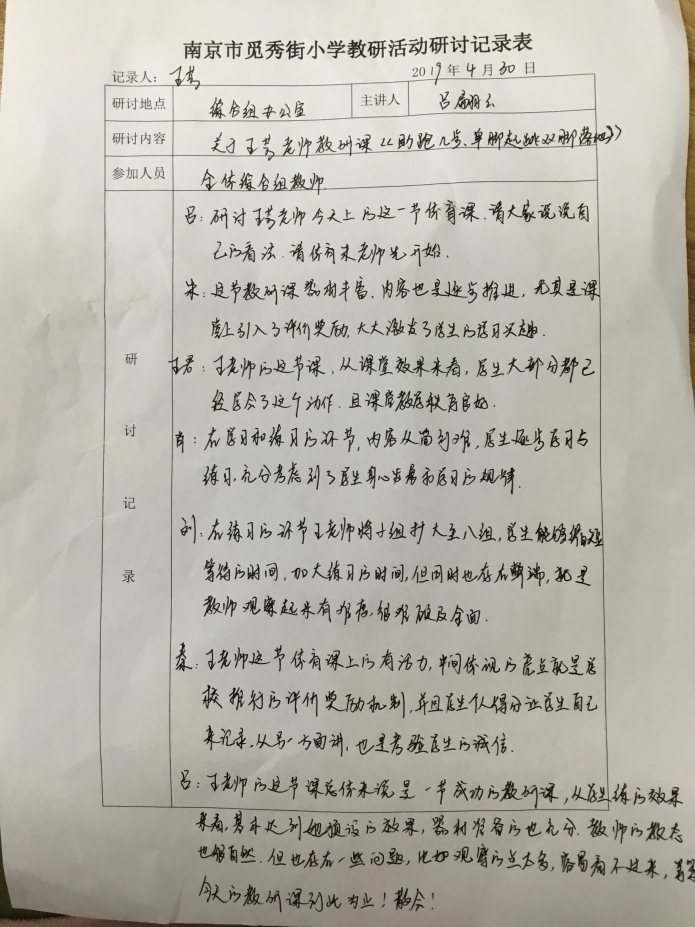 南京市觅秀街小学教研活动研讨记录表
记录人：王芳 2019年4月30日
研讨地点 综合组办公室 主讲人 吕
研讨内容 关于王芳老师教研课《助跑几步、单脚起跳双脚落地》
参加人员 全体综合组教师
研讨记录
吕：研讨王芳老师今天上的这一节体育课.请大家说说自
己的看法.请体育朱老师先开始.
朱：这节教研课器材丰富、内容也是逐步推进，尤其是课
堂上引入了评价奖励，大大激发了学生的学习兴趣.
王君：王老师的这节课，从课堂效果来看，学生大部分都已
经学会了这个动作.且课堂教学秩序良好.
肖：在学习和练习的环节，内容从简到难，学生逐步学习与
练习，充分考虑到了学生身心发育和学习的规律.
刘：在练习的环节王老师将小组扩大至八组，学生能够缩短
等待的时间，加大练习的时间，但同时也存在弊端，就是
教师观察起来有难度.很难顾及全面.
秦：王老师这节体育课上的有活力，中间体现的亮点就是学
校推行的评价奖励机制，并且学生个人得分让学生自己
来记录，从另一方面讲，也是考验学生的诚信.
吕：王老师的这节课总体来说是一节成功的教研课，从学生练的效果
来看，基本达到她预设的效果，器材准备的也充分.教师的教态
也很自然.但也存在一些问题，比如观察的点太多，容易看不过来，等等
今天的教研课到此为止！散会！